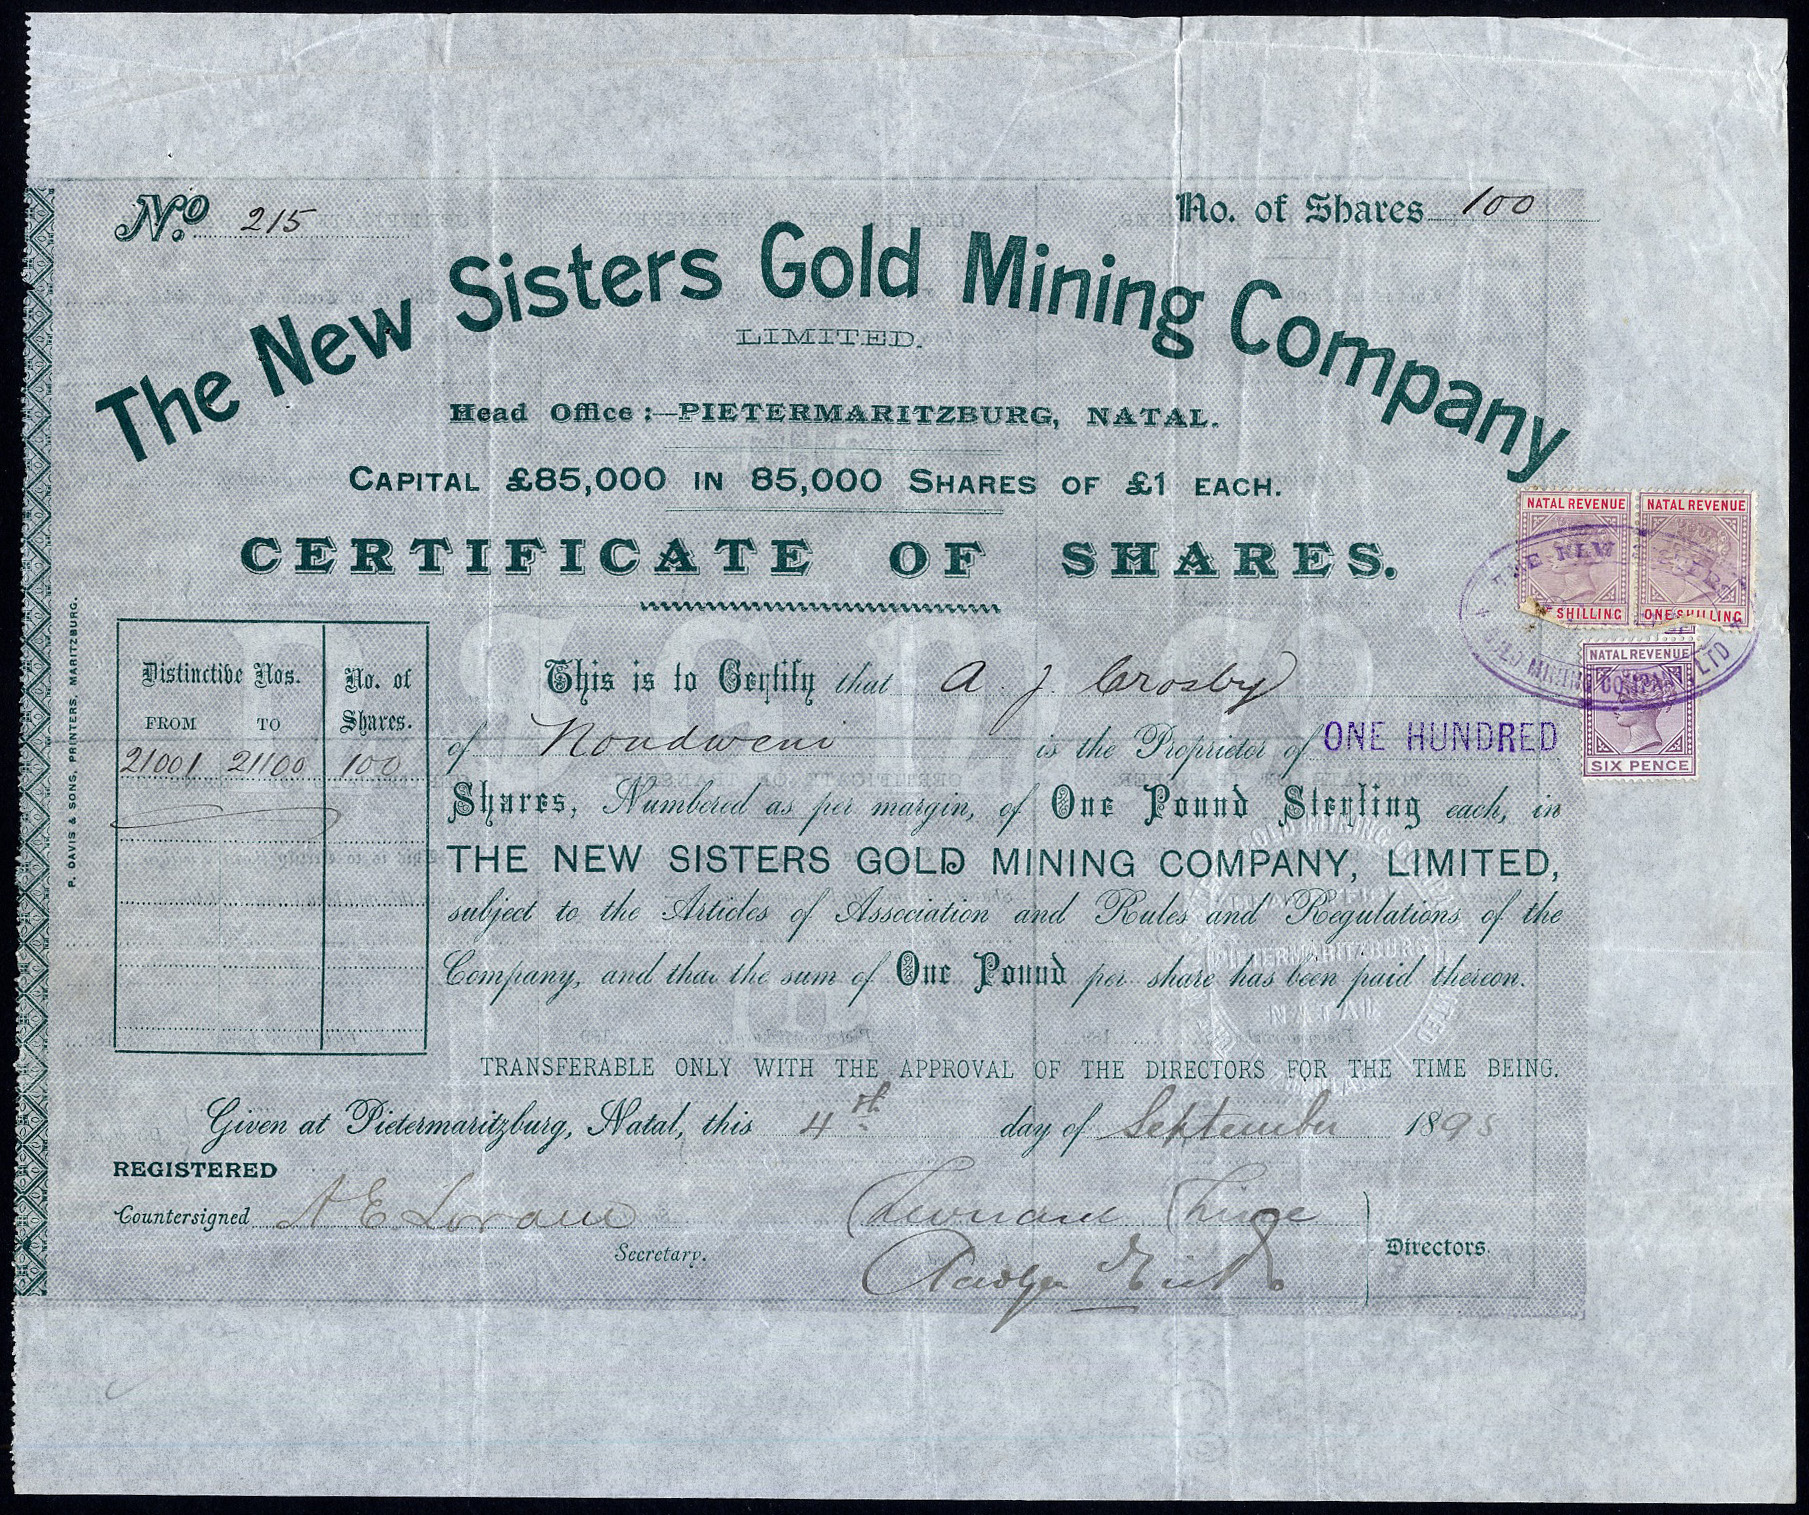 No. 215
No. of Shares 100
The New Sisters Gold Mining Company
LIMITED.
Head Office :—PIETERMARITZBURG, NATAL.
CAPITAL £85,000 IN 85,000 SHARES OF £1 EACH.
CERTIFICATE OF SHARES.
NATAL REVENUE NATAL REVENUE
SHILLING ONE SHILLING
THE NEW SISTERS
GOLD MINING COMPANY LTD
NATAL REVENUE
SIX PENCE
P. DAVIS & SONS, PRINTERS, MARITZBURG.
Distinctive Nos. No. of Shares.
FROM TO
21001 21100 100
This is to Certify that A. J. Crosby
of Nondweni is the Proprietor of ONE HUNDRED
Shares, Numbered as per margin, of One Pound Sterling each, in
THE NEW SISTERS GOLD MINING COMPANY, LIMITED,
subject to the Articles of Association and Rules and Regulations of the
Company, and that the sum of One Pound per share has been paid thereon.
PIETERMARITZBURG
NATAL
TRANSFERABLE ONLY WITH THE APPROVAL OF THE DIRECTORS FOR THE TIME BEING.
Given at Pietermaritzburg, Natal, this 4th day of September 1895
REGISTERED
Countersigned A E
Secretary.
Directors.